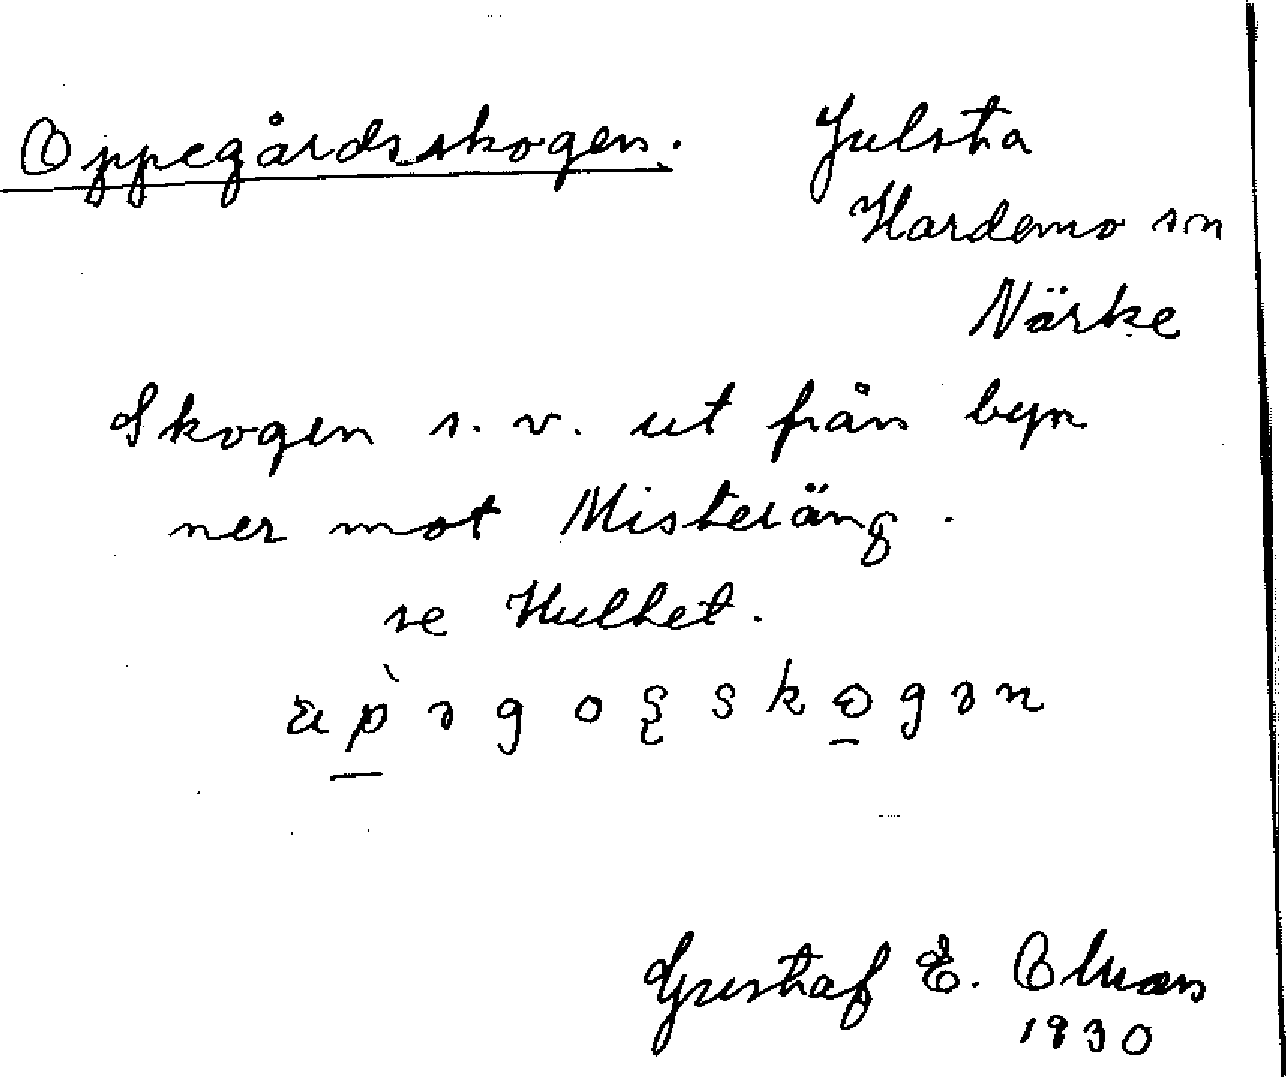 Oppegårdsskogen. Julsta
Hardemo sn
Närke
Skogen s. v. ut från byn
ner mot Misteräng.
se Hulhet.
Gustaf E.
1930